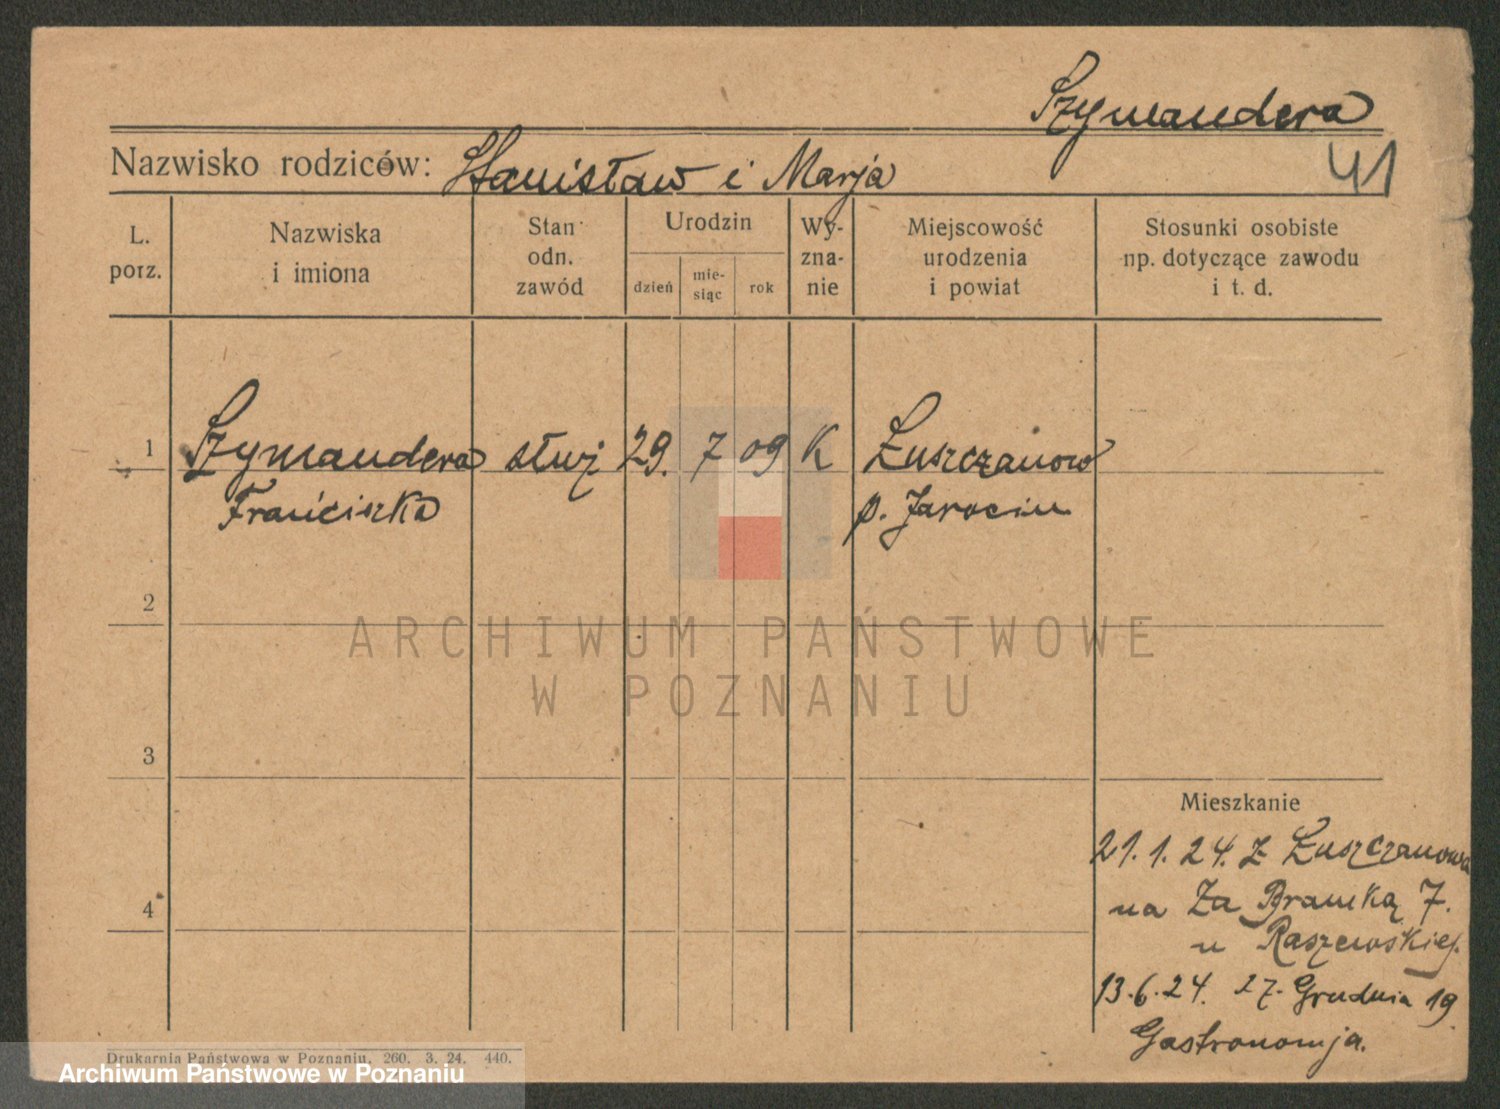 Szymandera
Nazwisko rodziców: Stanisław i Marja
41
L. porz.
Nazwiska i imiona
Stan odn. zawód
Urodzin
dzień
mie-siąc
rok
Wy-zna-nie
Miejscowość urodzenia i powiat
Stosunki osobiste np. dotyczące zawodu i t. d.
1 Szymandera służ 29. 7 09 K Łuszczanow
Franciszka p. Jarocin
2
ARCHIWUM PAŃSTWOWE
W POZNANIU
3
Mieszkanie
21.1.24. z Łuszczanowa
na Za Bramką 7.
u Raszewskiej.
4
13.6.24. 27. Grudnia 19
Gastronomja.
Drukarnia Państwowa w Poznaniu, 260. 3. 24. 440.
Archiwum Państwowe w Poznaniu